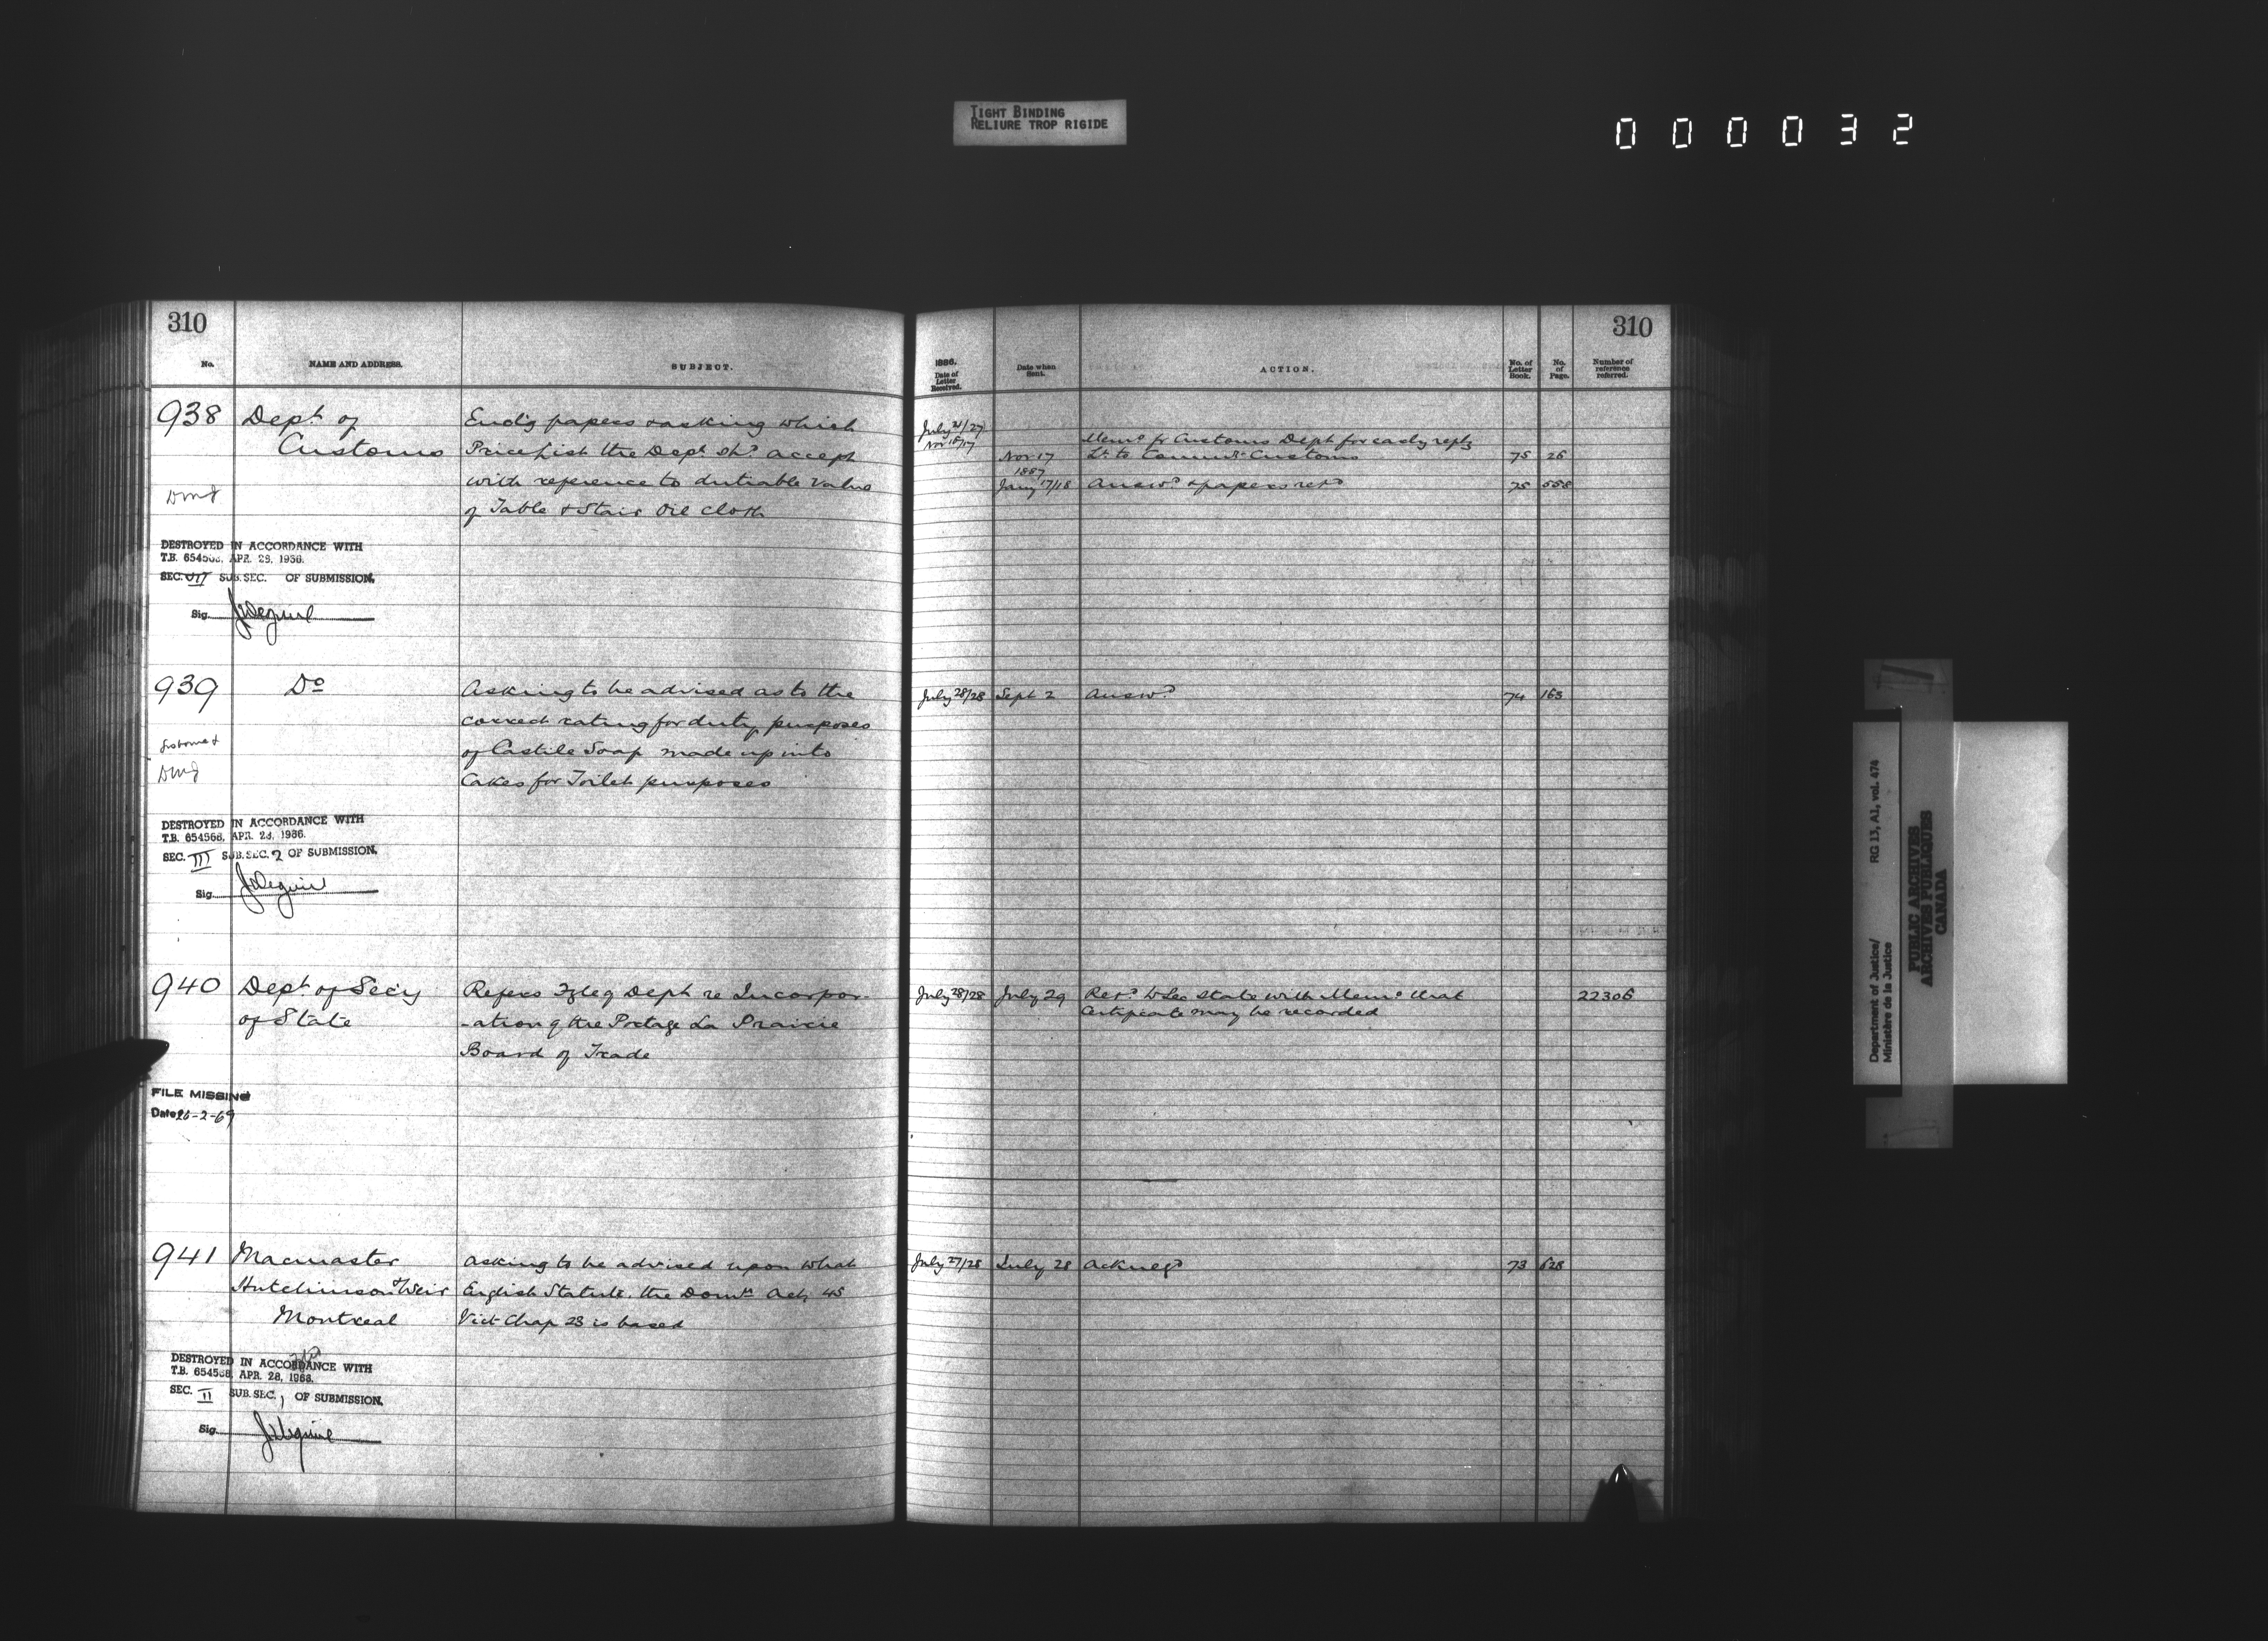 TIGHT BINDING
RELIURE TROP RIGIDE
000032
310
No.
NAME AND ADDRESS.
SUBJECT.
938
Dept. of
Customs
Encl'g papers & asking which
Price List the Dept. shd accept
with reference to dutiable value
of Table & Stair Oil Cloth
DESTROYED IN ACCORDANCE WITH
T.B. 654568, APR. 28, 1966.
SEC. SUB. SEC. OF SUBMISSION.
Sig.
939
Do
Asking to be advised as to the
correct rating for duty purposes
of Castile Soap made up into
Cakes for Toilet purposes
DESTROYED IN ACCORDANCE WITH
T.B. 654568, APR. 28, 1966.
SEC. III SUB. SEC. 2 OF SUBMISSION.
Sig.
940
Dept. of Sec'y
of State
Refers Dept re Incorpor-
-ation of the Portage La Prairie
Board of Trade
FILE MISSING
Date 26-2-69
941
Macmaster
Hutchinson & Weir
Montreal
Asking to be advised upon what
English Statute, the Domn Act, 45
Vict Chap 23 is based
DESTROYED IN ACCORDANCE WITH
T.B. 654568, APR. 28, 1966.
SEC. II SUB. SEC. 1 OF SUBMISSION.
Sig.
310
1886.
Date of
Letter
Received.
Date when
Sent.
ACTION.
No. of
Letter
Book.
No.
of
Page.
Number of
reference
referred.
July 21/27
Nov 16/17
Memo fr Customs Dept for early reply
Nov 17
Lr. to Commr. Customs
75
26
1887
Jany 17/18
Answd & papers retd
75
558
July 28/28
Sept 2
Answd
74
163
July 28/28
July 29
Retd to Sec State with Memo that
Certificate may be recorded
22306
July 27/28
July 28
Acknegd
73
628
Department of Justice/
Ministère de la Justice
RG 13, A1, vol. 474
PUBLIC ARCHIVES
ARCHIVES PUBLIQUES
CANADA